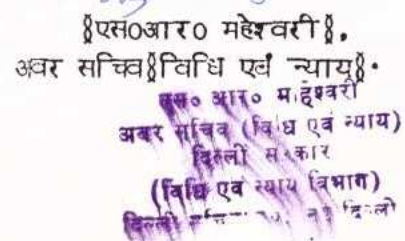 §एस०आर० महेश्वरी§,
अवर सचिव§विधि एवं न्याय§.
एस० आर० महेश्वरी
अवर सचिव (विधि एवं न्याय)
दिल्ली सरकार
(विधि एवं न्याय विभाग)
दिल्ली